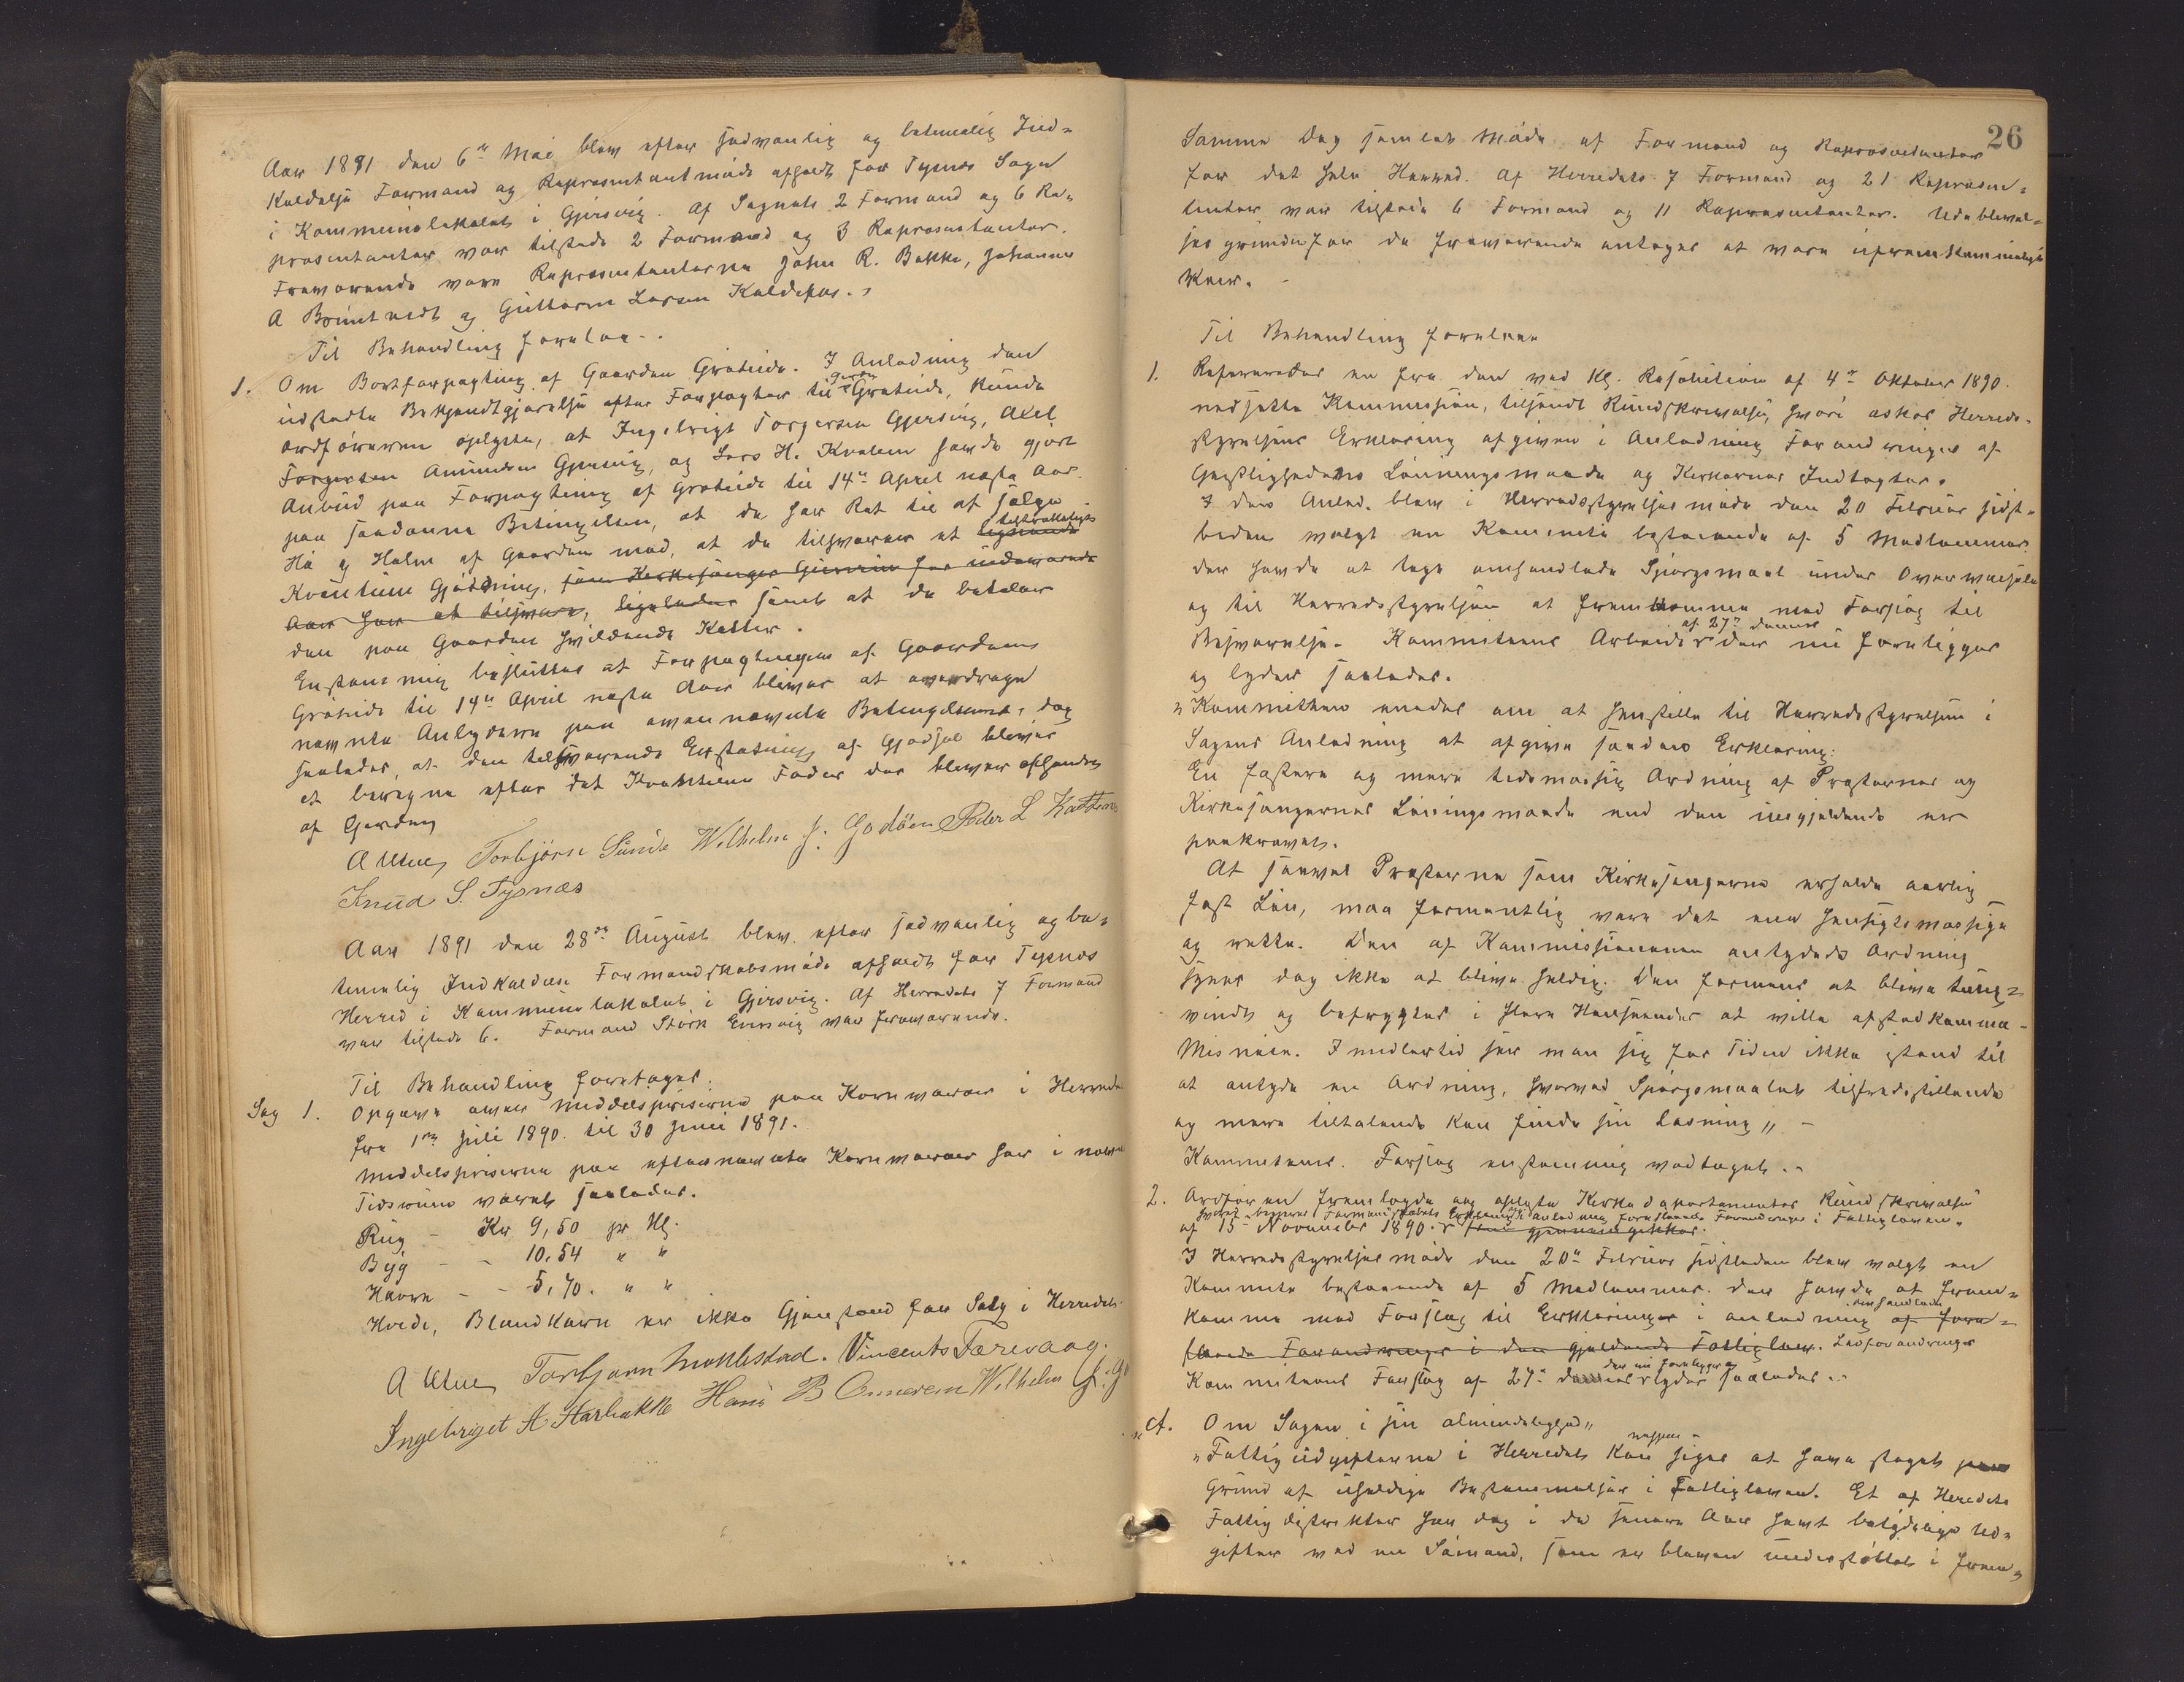 Aar 1891 den 6te Mai blev efter sedvanlig og betimelig Ind-
kaldelse Formand og Repræsentantmøde afholdt for Tysnes Sogn
i Kommunelokalet i Gjersvig. Af Sognets 2 Formænd og 6 Re-
præsentanter var tilstede 2 Formænd og 3 Repræsentanter.
Fraværende vare Repræsentanterne John R. Bakke, Johannes
A Bruntvedt og Guttorm Larsen Kaldefos.
Til Behandling forelaa.
1. Om Bortforpagting af Gaarden Grøteide. I Anledning den
udstedte Bekjendtgjørelse efter Forpagter til Garden Grøteide, kunde
ordføreren oplyste, at Ingebrigt Torgersen Gjersvig, Axel
Torgersen Amundsen Gjersvig, og Lars H. Kvalem havde gjort
Anbud paa Forpagtning af Grøteide til 14de April næste Aar
paa saadanne Betingelser, at de har Ret til at sælge
Hø og Halm af Gaarden mod, at de tilsvarer et lignende tilstrækkeligt
Kvantum Gjødning, som Kirkesanger Gunner for nuværende
Aar har at tilsvare, ligeledes samt at de betaler
den paa Gaarden hvilende Katter.
Enstemmig besluttes at Forpagtningen af Gaardens
Grøteide til 14de April næste Aar bliver at overdrage
nævnte Anbydere paa ovennævnte Betingelser, dog
saaledes, at den tilsvarende Erstatning af Gjødsel bliver
at beregne efter det Kvantum Foder der bliver afhændet
af Garden
A Uttne Torbjørn Sunde Wilhelm J. Godøen Peder L Kattem
Knud S. Tysnæs
Aar 1891 den 28de August blev efter sedvanlig og be-
timelig Indkaldelse Formandskabsmøde afholdt for Tysnes
Herred i Kommunelokalet i Gjersvig. Af Herredets 7 Formænd
var tilstede 6. Formand Størk Enesvig var fraværende.
Til Behandling foretoges.
Sag 1. Opgave over middelspriserne paa Kornvarer i Herredet
fra 1ste Juli 1890. til 30 Juni 1891.
Middelspriserne paa efternævnte Kornvarer har i nævnte
Tidsrum været saaledes.
Rug – Kr 9,50 pr Hl.
Byg – – 10,54 " "
Havre – – 5,70. " "
Hvede, Blandkorn er ikke Gjenstand for Salg i Herredet.
A Uttne Torbjørn Møklestad. Vincents Færevaag.
Ingebrigt A Harbakke Hans B Onnerem Wilhelm J. G
26
Samme Dag samlet Møde af Formænd og Repræsentanter
for det hele Herred. Af Herredets 7 Formænd og 21 Repræsen-
tanter var tilstede 6 Formænd og 11 Repræsentanter. Udeblivel-
sesgrunde for de fraværende antages at være ufremkommelige
Veir.
Til Behandling forelaa
1. Refereredes en fra den ved Kgl. Resolution af 4de Oktober 1890.
nedsatte Kommission, tilsendt Rundskrivelse, hvori æskes Herreds-
styrelsens Erklæring afgiven i Anledning Forandringer af
Geistlighedens Lønningsmaade og Kirkernes Indtægter.
I den Anled. blev i Herredsstyrelsesmøde den 20 Februar sidst-
leden valgt en Kommite bestaaende af 5 Medlemmer
der havde at tage omhandlede Spørgsmaal under Overveielse
og til Herredsstyrelsen at fremkomme med Forslag til
Besvarelse. Kommiteens Arbeide af 27de dennes der nu foreligger
og lyder saaledes.
"Kommitten enedes om at henstille til Herredsstyrelsen i
Sagens Anledning at afgive saadan Erklæring:
En fastere og mere tidsmæssig Ordning af Præsternes og
Kirkesangernes Lønningsmaade end den nugjældende er
paakrævet.
At saavel Præsterne som Kirkesangerne erholde aarlig
fast Løn, maa formentlig være det ene hensigtsmæssige
og rette. Den af Kommissionen antydede Ordning
synes dog ikke at blive heldig. Den formenes at blive tung-
vindt og befrygtes i flere Henseender at ville afstedkomme
Misnøie. Imidlertid ser man sig for Tiden ikke istand til
at antyde en Ordning, hvorved Spørgsmaalet tilfredsstillende
og mere tiltalende kan finde sin Løsning" –
Kommiteens. Forslag enstemmig vedtaget.
2. Ordføreren fremlagde og oplyste Kirkedepartementets Rundskrivelse
af 15de November 1890. hvori begjæres Formandskabets Erklæring i Anledning Foreslaaede Forandringer i Fattigloven. som gjennemgikkes.
I Herredsstyrelsesmøde den 20de Februar sidstleden blev valgt en
Kommite bestaaende af 5 Medlemmer. der havde at frem-
komme med Forslag til Erklæringer i anledning omhandlede af fore-
slaaede Forandringer i den gjældende Fattiglov. Lovforandringer
Kommiteens Forslag af 27de dennes der nu foreligger og lyder saaledes.
"A. Om Sagen i sin almindelighed"
"Fattigudgifterne i Herredet kan neppe siges at have steget paa
Grund af uheldige Bestemmelser i Fattigloven. Et af Heredets
Fattigdistrikter har dog i de senere Aar havt betydelige Ud-
gifter ved en Sømand, som er bleven understøttet i Frem-